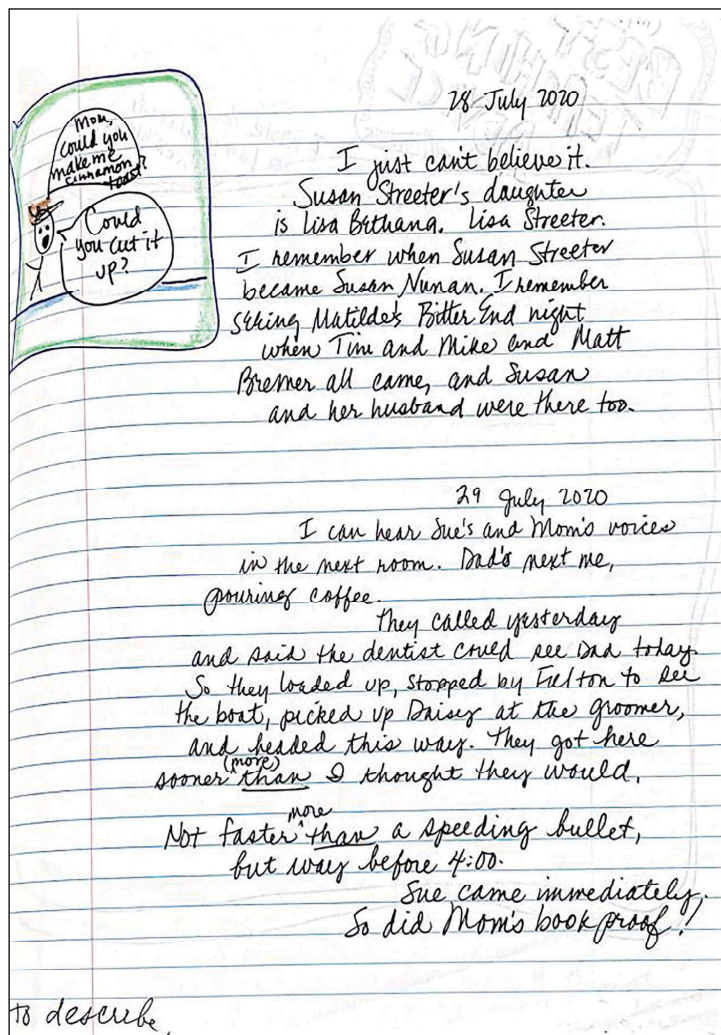 Mom,
could you
make me
cinnamon
toast?
Could
you cut it
up?
28 July 2020
I just can't believe it.
Susan Streeter's daughter
is Lisa Bethana. Lisa Streeter.
I remember when Susan Streeter
became Susan Nunan. I remember
seeing Matilde's Bitter End night
when Tim and Mike and Matt
Bremer all came, and Susan
and her husband were there too.
29 July 2020
I can hear Sue's and Mom's voices
in the next room. Dad's next me,
pouring coffee.
They called yesterday
and said the dentist could see Dad today.
So they loaded up, stopped by Fulton to see
the boat, picked up Daisy at the groomer,
and headed this way. They got here
sooner (more) than I thought they would.
Not faster more than a speeding bullet,
but way before 4:00.
Sue came immediately.
So did Mom's book proof!
to describe